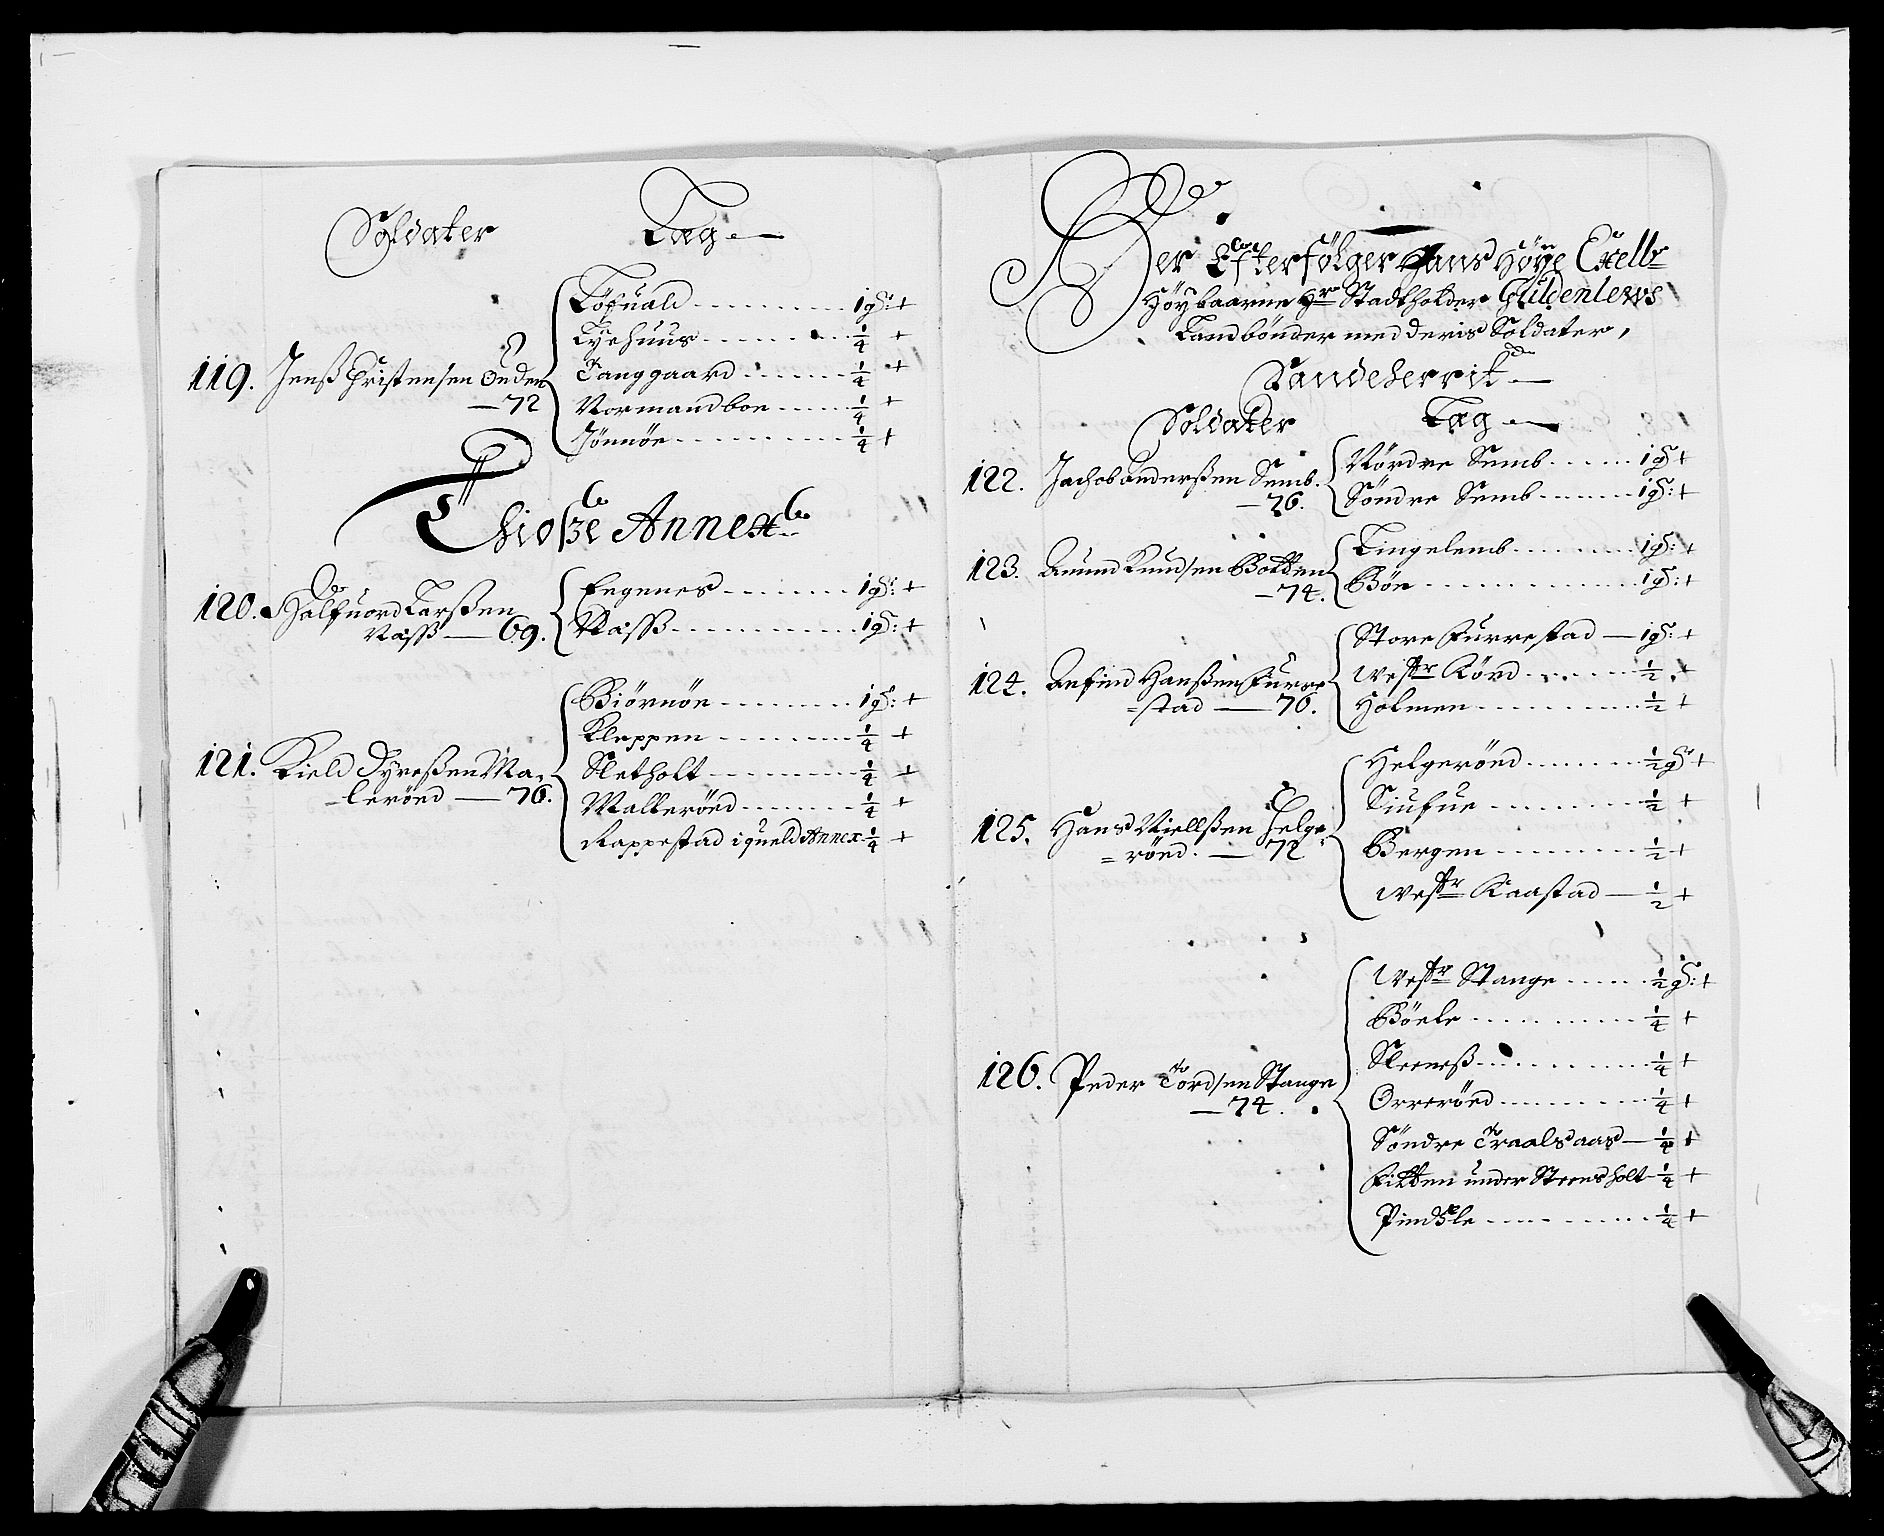 Soldater Læg
119. Jenß Christensen Onden
— 72
Löfuald 1 g: +
Lyehuus ¼ +
Tanggaard ¼ +
Normandboe ¼ +
Jönnöe ¼ +
Hioßse Annex
120. Halfuord Larßen
Næss — 69.
Engenes 1 g: +
Næss 1 g: +
121. Kield Dyreßen Ma-
lerönd — 76.
Biörnöe 1 g: +
Kleppen ¼ +
Sletholt ¼ +
Mallerönd ¼ +
Rappestad i queld Annex ¼ +
Her Efterfölger Hans Höye Excell:
Höybaarne Hr Stadtholder Güldenlews
Landbönder med deris Soldater,
Sandeherrit
Soldater Læg
122. Jachob anderßen Semb.
— 76.
Nördre Semb 1 g +
Söndre Semb 1 g: +
123. Amund Knudsen Botten
— 74.
Lingelemb 1 g: +
Böe 1 g: +
124. Anfind Hanßen Furre
=stad — 76.
Store Furrestad — 1 g: +
Westr Rörd ½ +
Holmen ½ +
125. Hans Niellßen Helge-
=rönd. — 72
Helgerönd ½ g +
Siufue ½ +
Bergen ½ +
Westr Kaastad — ½ +
126. Peder Tordsen Stange
— 74.
Westr Stange ½ g: +
Böele ¼ +
Steeneß ¼ +
Orrerönd ¼ +
Söndre Traalsaas — ¼ +
Fitten under Steensholt ¼ +
Pindsle ¼ +